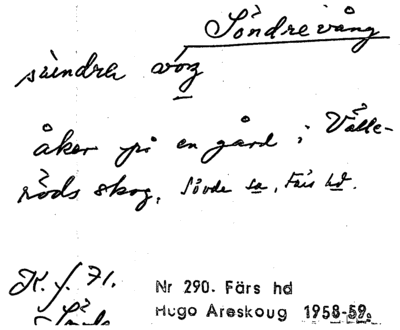 Söndrevång
såindra våŋ
åker på en gård i Välle-
röds skog, Sövde sn, Färs hd.
K. f. 71.
Nr 290. Färs hd
Hugo Areskoug 1958-59.